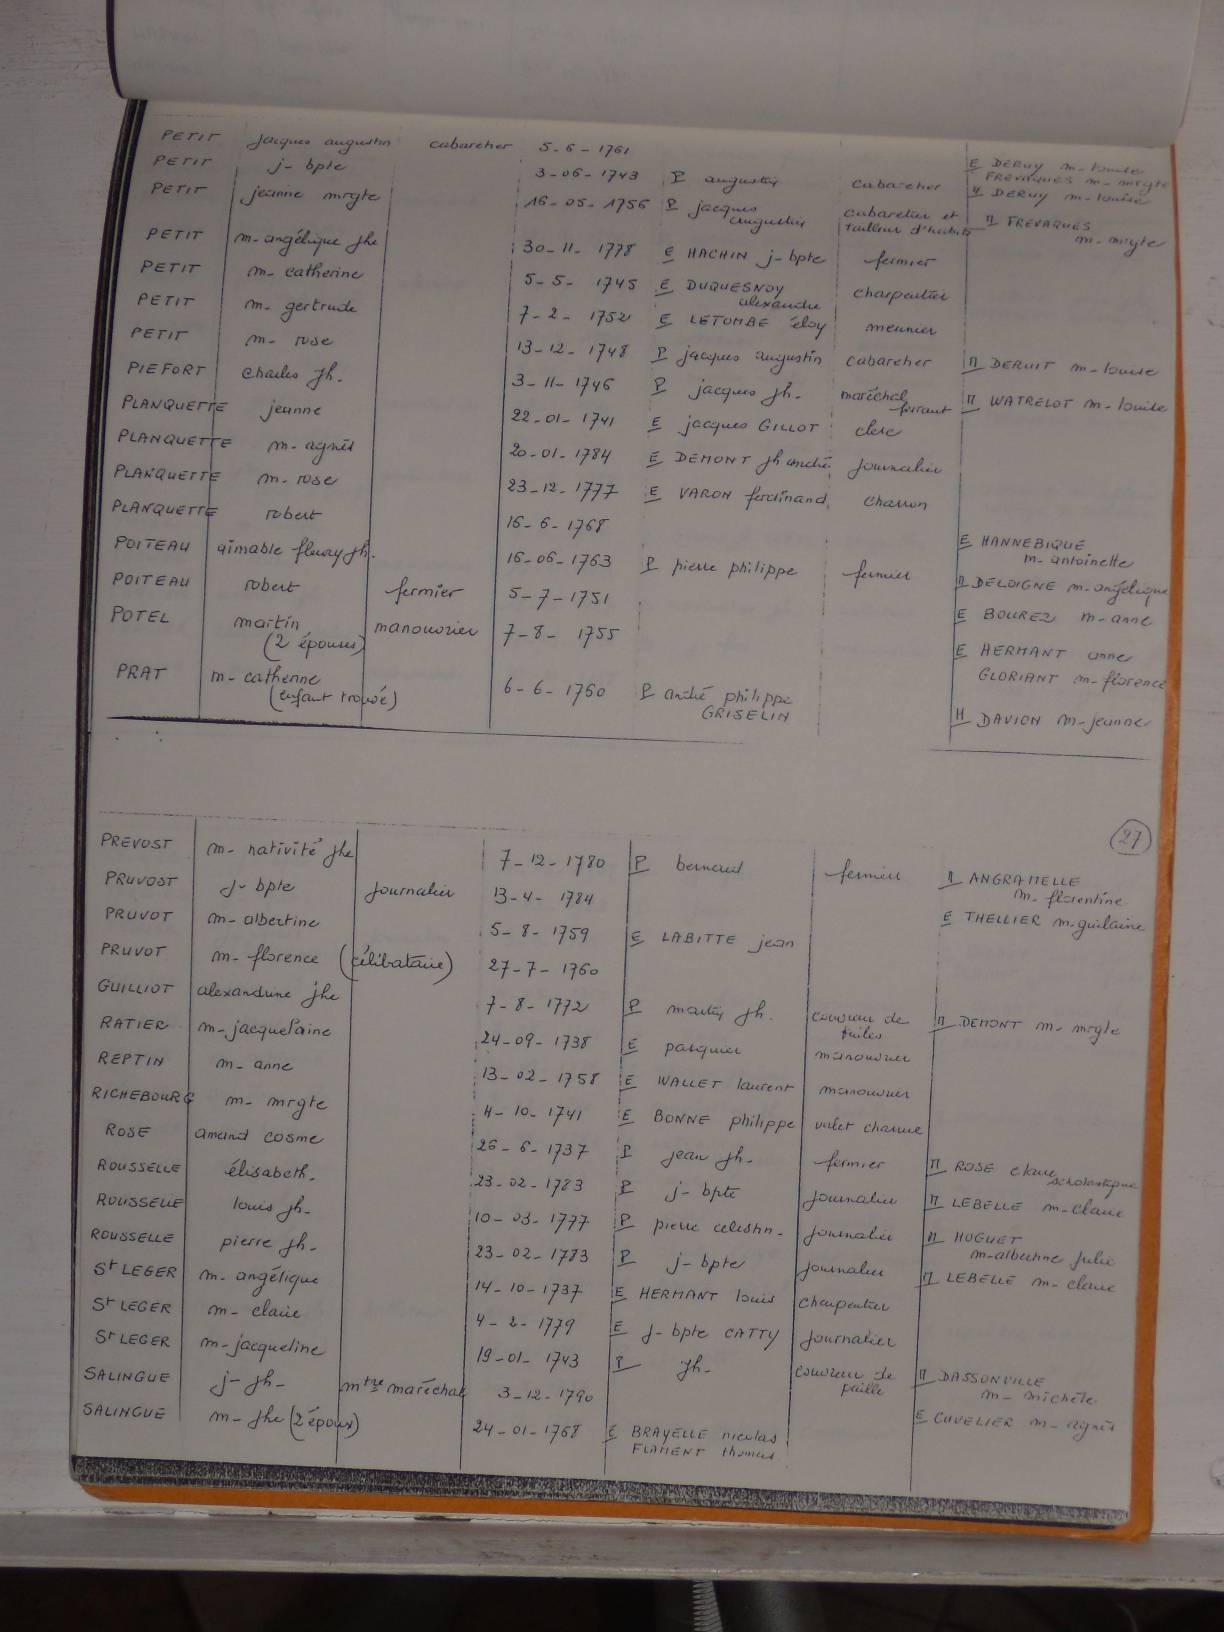 PETIT jacques augustin cabaretier 5-6-1761 E DERUY m-louise
FREVAQUES m-mrgte
PETIT j-bpte 3-06-1743 P augustin cabaretier M DERUY m-louise
PETIT jeanne mrgte 16-05-1756 P jacques augustin cabaretier et tailleur d'habits M FREVAQUES
m-mrgte
PETIT m-angélique jhe 30-11-1778 E HACHIN j-bpte fermier
PETIT m-catherine 5-5-1745 E DUQUESNOY alexandre charpentier
PETIT m-gertrude 7-2-1752 E LETOMBE éloy meunier
PETIT m-rose 13-12-1748 P jacques augustin cabaretier M DERUIT m-louise
PIEFORT charles jh. 3-11-1746 P jacques jh. maréchal ferrant M WATRELOT m-louise
PLANQUETTE jeanne 22-01-1741 E jacques GILLOT clerc
PLANQUETTE m-agnès 20-01-1784 E DEMONT jh andré journalier
PLANQUETTE m-rose 23-12-1777 E VARON ferdinand charron
PLANQUETTE robert 16-6-1768 E HANNEBIQUE
m-antoinette
POITEAU aimable fleury jh. 16-06-1763 P pierre philippe fermier M DELOIGNE m-angélique
POITEAU robert fermier 5-7-1751 E BOUREZ m-anne
POTEL martin manouvrier 7-8-1755 E HERMANT anne
(2 épouses) GLORIANT m-florence
PRAT m-catherine 6-6-1760 P andré philippe M DAVION m-jeanne
(enfant trouvé) GRISELIN
27
PREVOST m-nativité jhe 7-12-1780 P bernard fermier M ANGRAMELLE
m-florentine
PRUVOST j-bpte journalier 13-4-1784 E THELLIER m-guilaine
PRUVOT m-albertine 5-8-1759 E LABITTE jean
PRUVOT m-florence (célibataire) 27-7-1760
GUILLIOT alexandrine jhe 7-8-1772 P martin jh. couvreur de tuiles M DEMONT m-mrgte
RATIER m-jacquelaine 24-09-1738 E pasquier manouvrier
REPTIN m-anne 13-02-1758 E WALLET laurent manouvrier
RICHEBOURG m-mrgte 4-10-1741 E BONNE philippe valet charrue
ROSE amand cosme 26-6-1737 P jean jh. fermier M ROSE claire
scholastique
ROUSSELLE élisabeth. 23-02-1783 P j-bpte journalier M LEBELLE m-claire
ROUSSELLE louis jh. 10-03-1777 P pierre celestin. journalier M HUGUET
m-albertine julie
ROUSSELLE pierre jh. 23-02-1783 P j-bpte journalier M LEBELLE m-claire
St LEGER m-angélique 14-10-1737 E HERMANT louis charpentier
St LEGER m-claire 4-2-1779 E j-bpte CATTY journalier
St LEGER m-jacqueline 19-01-1743 P jh. couvreur de paille M DASSONVILLE
m-michèle
SALINGUE j-jh. mtre maréchal 3-12-1790 E CUVELIER m-agnès
SALINGUE m-jhe (2 époux) 24-01-1768 E BRAYELLE nicolas
FLAMENT thomas